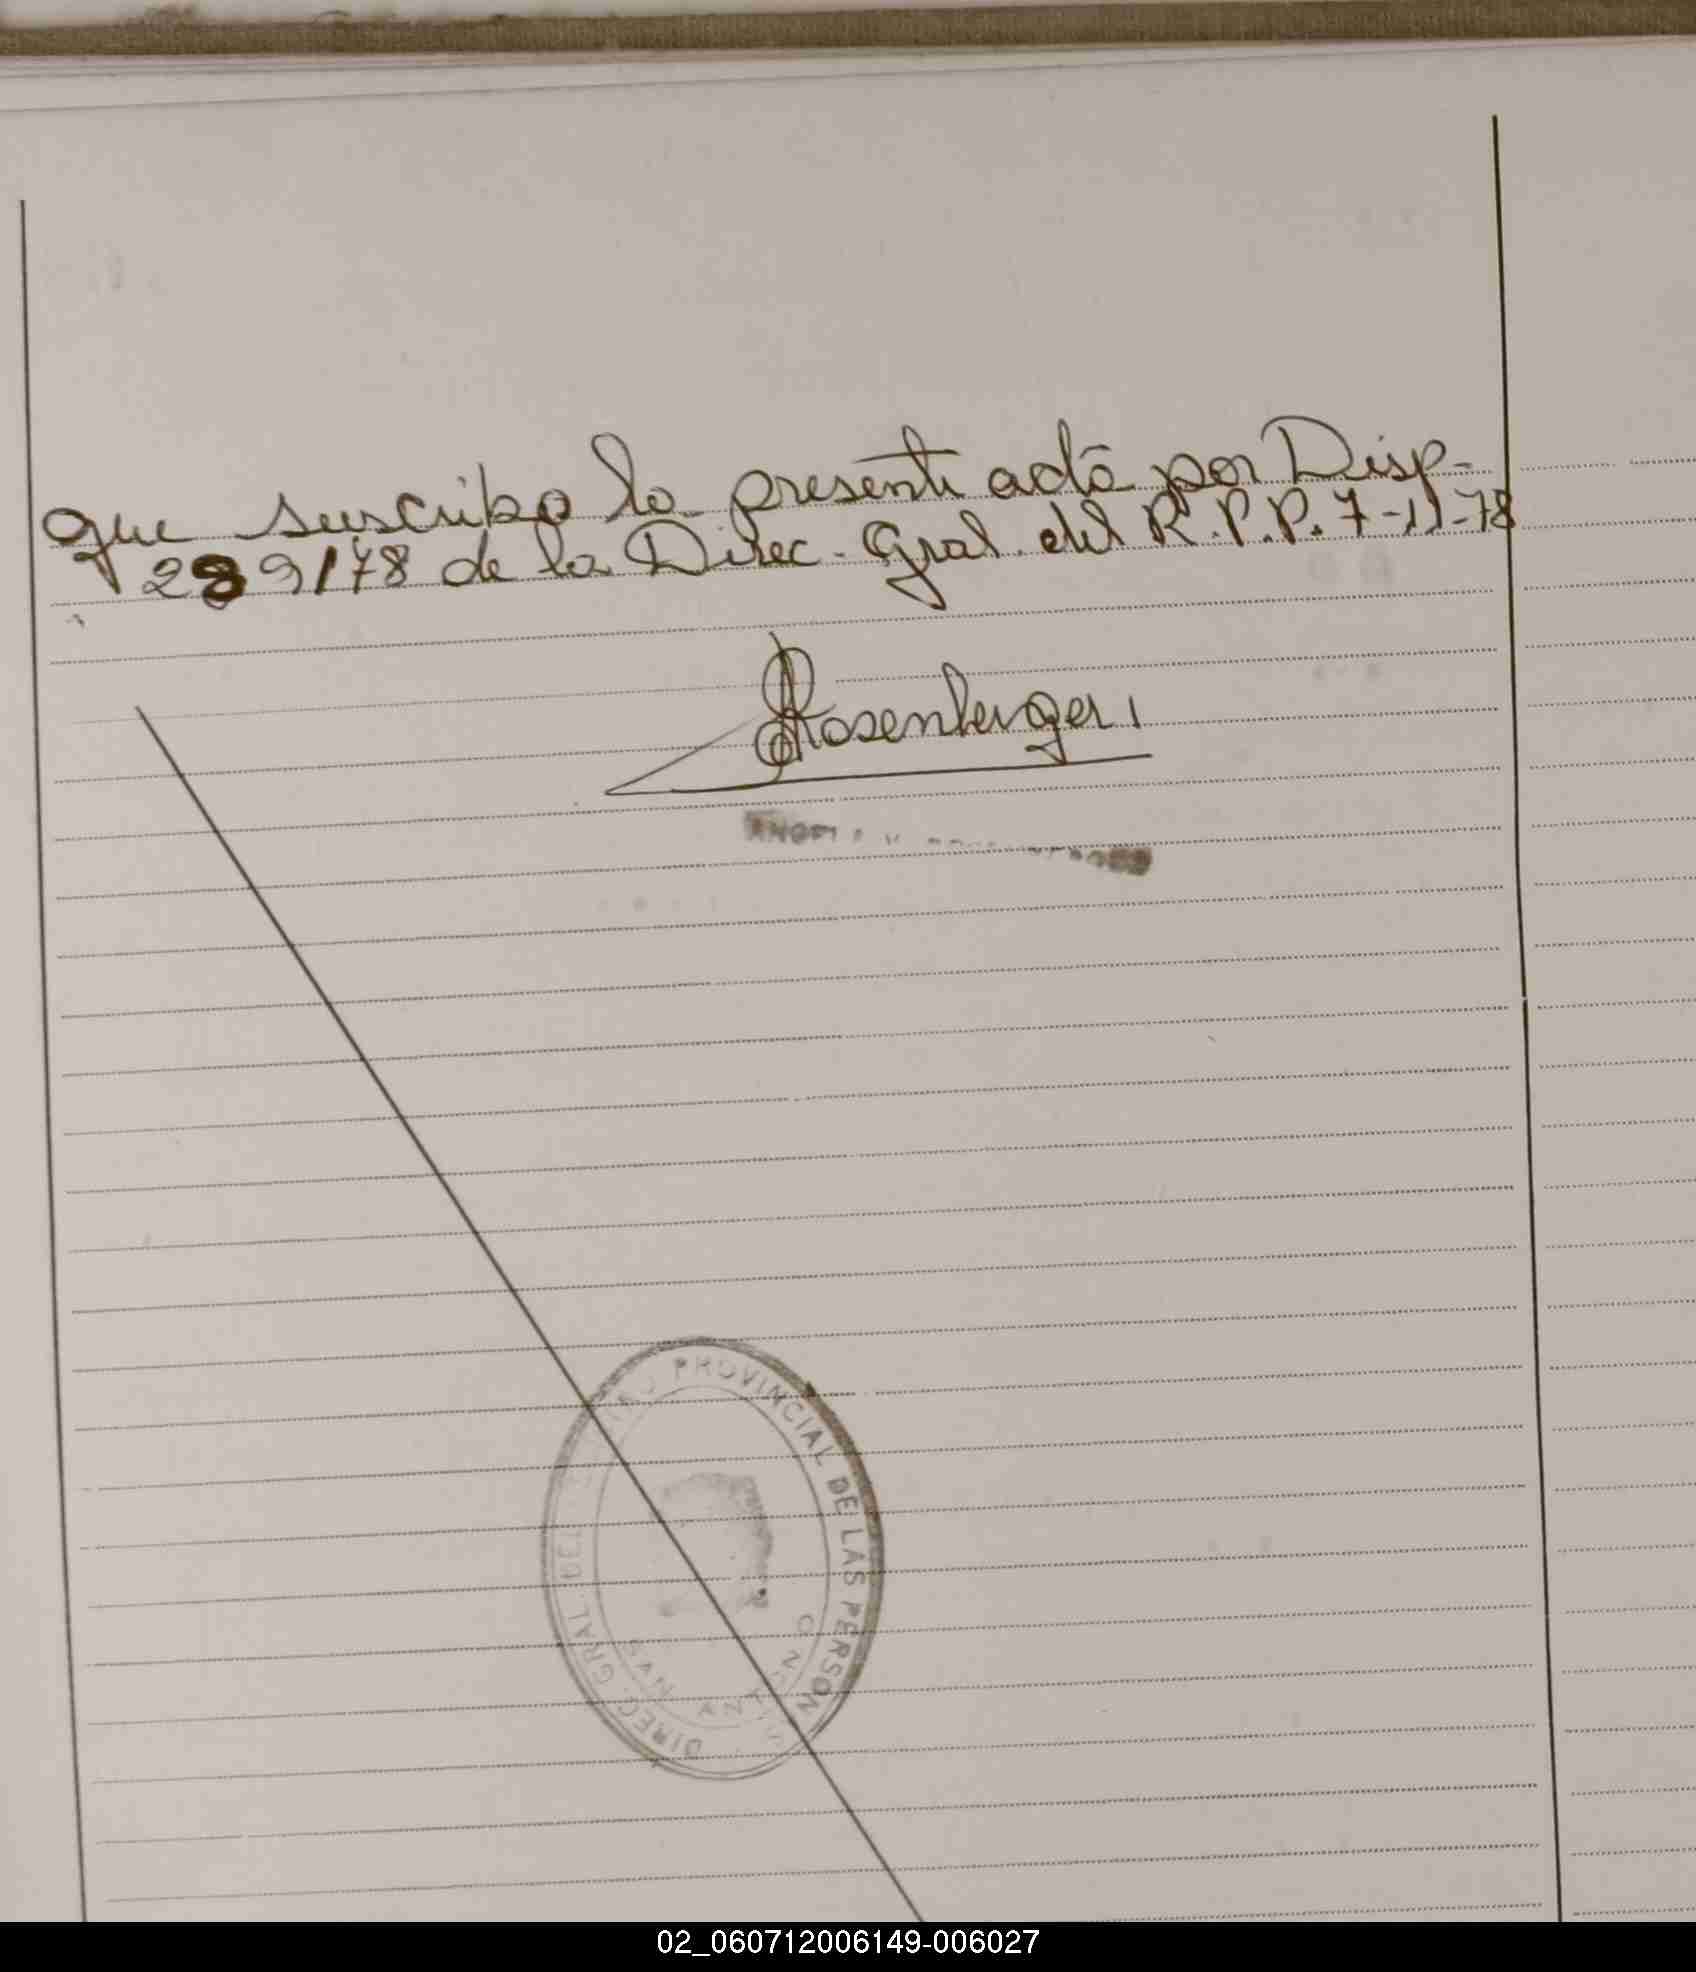 que suscribo la presente acta por Disp-
289/78 de la Direc. Gral. del R.P.P. 7-11-78
Rosenberger
PROVINCIAL DE LAS PERSON
DIREC. GRAL. DEL
SAN ANTONIO
02_060712006149-006027